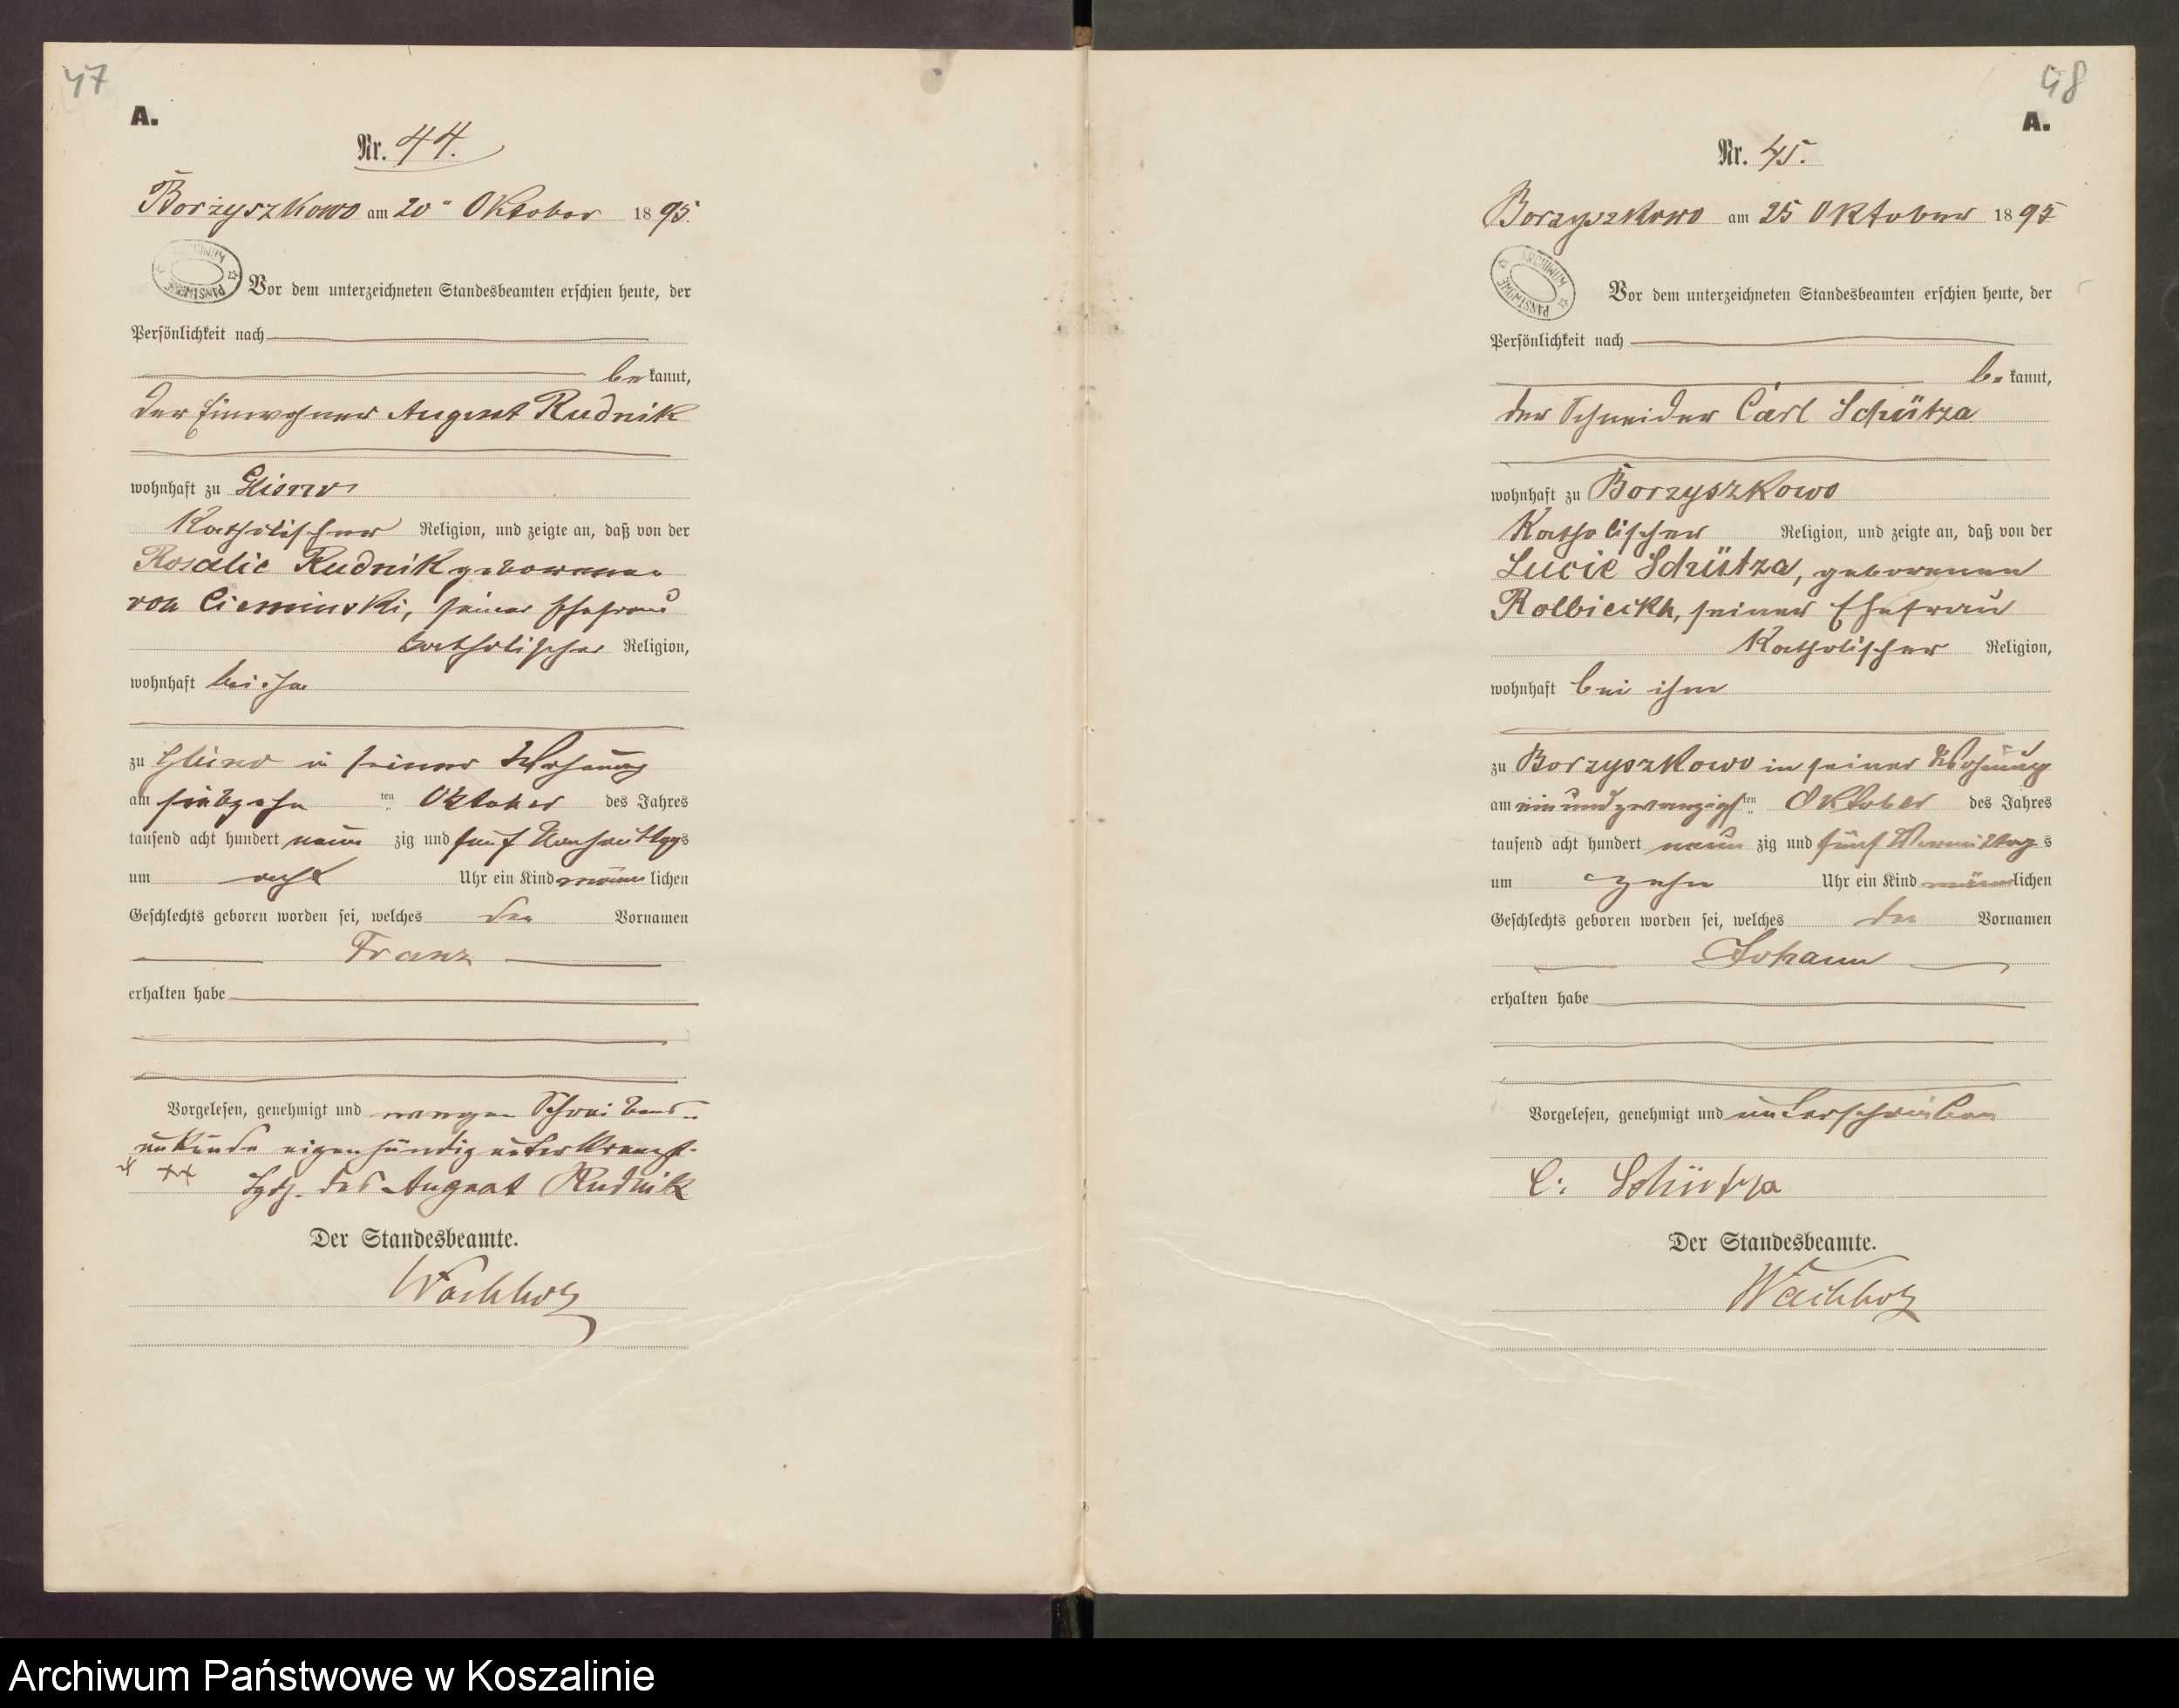 47
A.
Nr. 44.
Borzyszkowo am 20 Oktober 1895.
ARCHIWUM PAŃSTWOWE
Vor dem unterzeichneten Standesbeamten erschien heute, der
Persönlichkeit nach
bekannt,
der Einwohner August Rudnik
wohnhaft zu
Katholischer Religion, und zeigte an, daß von der
Rosalie Rudnik geborenen
von Cieminski, seiner Ehefrau
katholischer Religion,
wohnhaft bei ihm
zu Glisno in seiner Wohnung
am siebzehn ten Oktober des Jahres
tausend acht hundert neun zig und fünf Vormittags
um acht Uhr ein Kind männlichen
Geschlechts geboren worden sei, welches den Vornamen
Franz
erhalten habe
Vorgelesen, genehmigt und wegen Schreibens-
unkunde eigenhändig unterkreuzt.
+ ++ des August Rudnik
Der Standesbeamte.
Wachholz
48
A.
Nr. 45.
Borzyszkowo am 25 Oktober 1895
ARCHIWUM PAŃSTWOWE
Vor dem unterzeichneten Standesbeamten erschien heute, der
Persönlichkeit nach
bekannt,
der Schneider Carl Schütza
wohnhaft zu Borzyszkowo
Katholischer Religion, und zeigte an, daß von der
Lucie Schütza, geborenen
seiner Ehefrau
Katholischer Religion,
wohnhaft bei ihm
zu Borzyszkowo in seiner Wohnung
am einundzwanzigsten Oktober des Jahres
tausend acht hundert neun zig und fünf Vormittags
um zehn Uhr ein Kind männlichen
Geschlechts geboren worden sei, welches den Vornamen
Johann
erhalten habe
Vorgelesen, genehmigt und unterschrieben
C. Schütza
Der Standesbeamte.
Wachholz
Archiwum Państwowe w Koszalinie